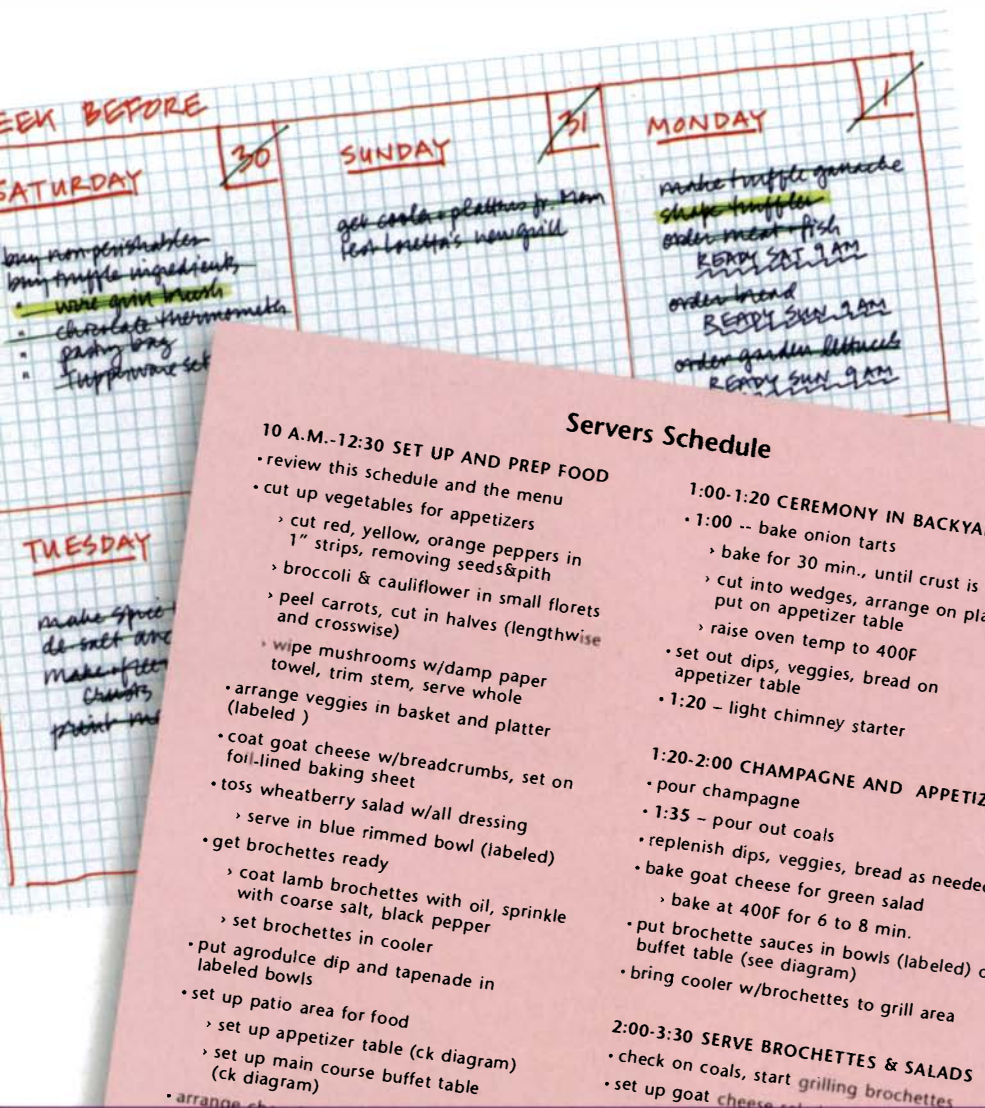 EEK BEFORE
SATURDAY
30
buy nonperishables
buy truffle ingredients
chocolate thermometer
pastry bag
Tupperware set
SUNDAY
31
get cooler + platters fr. Mom
test Loretta's new grill
MONDAY
1
make truffle ganache
shape truffles
order meat + fish
READY SAT 9 AM
order bread
READY SUN 9 AM
order garden lettuces
READY SUN 9 AM
TUESDAY
make spice
de-salt anc
make
crusts
print me
Servers Schedule
10 A.M.-12:30 SET UP AND PREP FOOD
• review this schedule and the menu
• cut up vegetables for appetizers
› cut red, yellow, orange peppers in
1" strips, removing seeds&pith
› broccoli & cauliflower in small florets
› peel carrots, cut in halves (lengthwise
and crosswise)
› wipe mushrooms w/damp paper
towel, trim stem, serve whole
• arrange veggies in basket and platter
(labeled )
• coat goat cheese w/breadcrumbs, set on
foil-lined baking sheet
• toss wheatberry salad w/all dressing
› serve in blue rimmed bowl (labeled)
• get brochettes ready
› coat lamb brochettes with oil, sprinkle
with coarse salt, black pepper
› set brochettes in cooler
• put agrodulce dip and tapenade in
labeled bowls
• set up patio area for food
› set up appetizer table (ck diagram)
› set up main course buffet table
(ck diagram)
• arrange
1:00-1:20 CEREMONY IN BACKYA
• 1:00 -- bake onion tarts
› bake for 30 min., until crust is
› cut into wedges, arrange on pla
put on appetizer table
› raise oven temp to 400F
• set out dips, veggies, bread on
appetizer table
• 1:20 – light chimney starter
1:20-2:00 CHAMPAGNE AND APPETIZ
• pour champagne
• 1:35 – pour out coals
• replenish dips, veggies, bread as neede
• bake goat cheese for green salad
› bake at 400F for 6 to 8 min.
• put brochette sauces in bowls (labeled) o
buffet table (see diagram)
• bring cooler w/brochettes to grill area
2:00-3:30 SERVE BROCHETTES & SALADS
• check on coals, start grilling brochettes
• set up goat cheese